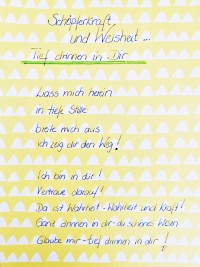 Schöpferkraft
und Weisheit...
Tief drinnen in Dir
Lass mich herein
in tiefe Stille
breite mich aus
ich zeig dir den Weg!
Ich bin in dir!
Vertraue darauf!
Da ist Wahrheit - Klarheit und Kraft!
Ganz drinnen in dir - du schönes Wesen
Glaube mir - tief drinnen in dir!